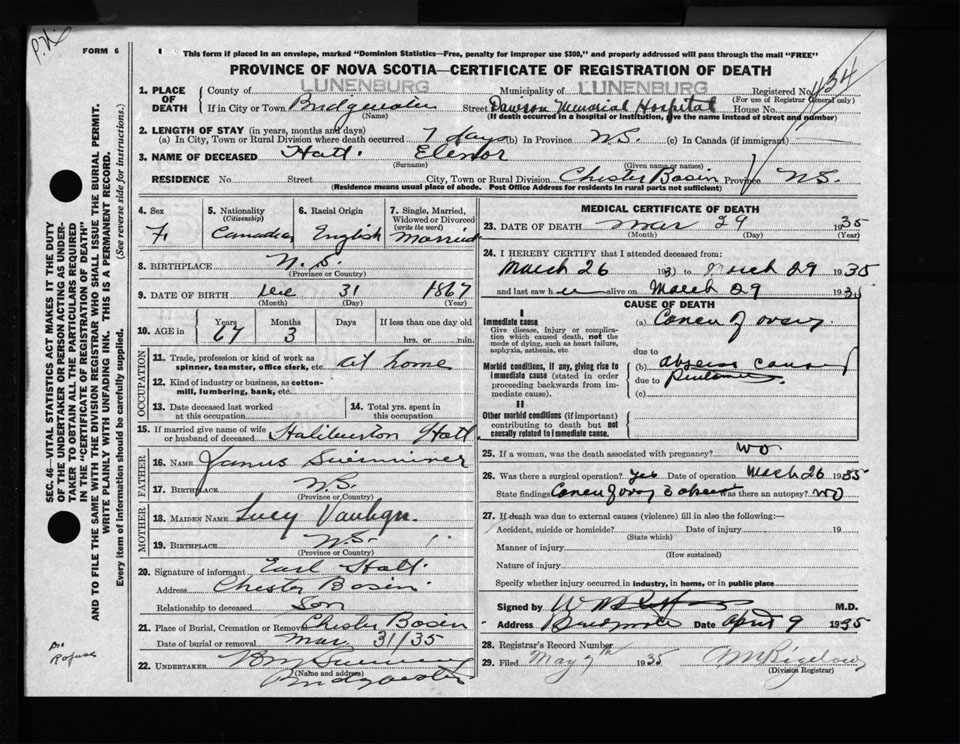 FORM 6
This form if placed in an envelope, marked "Dominion Statistics—Free, penalty for improper use $300," and properly addressed will pass through the mail "FREE"
PROVINCE OF NOVA SCOTIA—CERTIFICATE OF REGISTRATION OF DEATH
1. PLACE OF DEATH
County of LUNENBURG Municipality of LUNENBURG Registered No. 434
(For use of Registrar General only)
If in City or Town Bridgewater Street Dawson Memorial Hospital House No.
(Name) (If death occurred in a hospital or institution, give the name instead of street and number)
2. LENGTH OF STAY (in years, months and days)
(a) In City, Town or Rural Division where death occurred 7 days (b) In Province N.S. (c) In Canada (if immigrant)
3. NAME OF DECEASED Hatt Elenor
(Surname) (Given name or names)
RESIDENCE No. Street City, Town or Rural Division Chester Basin Province N.S.
(Residence means usual place of abode. Post Office Address for residents in rural parts not sufficient)
4. Sex F.
5. Nationality (Citizenship) Canadian
6. Racial Origin English
7. Single, Married, Widowed or Divorced (write the word) Married
8. BIRTHPLACE N.S.
(Province or Country)
9. DATE OF BIRTH Dec 31 1867
(Month) (Day) (Year)
10. AGE in Years 67 Months 3 Days If less than one day old hrs. or min.
OCCUPATION
11. Trade, profession or kind of work as spinner, teamster, office clerk, etc. at home
12. Kind of industry or business, as cotton-mill, lumbering, bank, etc.
13. Date deceased last worked at this occupation
14. Total yrs. spent in this occupation
15. If married give name of wife or husband of deceased Haliburton Hatt
FATHER
16. NAME
17. BIRTHPLACE N.S.
(Province or Country)
MOTHER
18. MAIDEN NAME Lucy
19. BIRTHPLACE N.S.
(Province or Country)
20. Signature of informant Earl Hatt
Address Chester Basin
Relationship to deceased Son
21. Place of Burial, Cremation or Removal Chester Basin
Date of burial or removal Mar 31/35
22. UNDERTAKER
(Name and address)
Bridgewater
MEDICAL CERTIFICATE OF DEATH
23. DATE OF DEATH Mar 29 1935
(Month) (Day) (Year)
24. I HEREBY CERTIFY that I attended deceased from:
March 26 193 to March 29 1935
and last saw her alive on March 29 1935
CAUSE OF DEATH
I
Immediate cause
Give disease, injury or complication which caused death, not the mode of dying, such as heart failure, asphyxia, asthenia, etc.
(a) Cancer of ovary
due to
Morbid conditions, if any, giving rise to immediate cause (stated in order proceeding backwards from immediate cause).
(b)
due to
(c)
II
Other morbid conditions (if important) contributing to death but not causally related to immediate cause.
25. If a woman, was the death associated with pregnancy? No
26. Was there a surgical operation? Yes Date of operation March 26 1935
State findings Cancer of ovary was there an autopsy? No
27. If death was due to external causes (violence) fill in also the following:—
Accident, suicide or homicide? Date of injury 19
(State which)
Manner of injury
(How sustained)
Nature of injury
Specify whether injury occurred in industry, in home, or in public place
Signed by M.D.
Address Bridgewater Date April 9 1935
28. Registrar's Record Number
29. Filed May 7th 1935
(Division Registrar)
SEC. 46—VITAL STATISTICS ACT MAKES IT THE DUTY OF THE UNDERTAKER OR PERSON ACTING AS UNDERTAKER TO OBTAIN ALL THE PARTICULARS REQUIRED IN THE "CERTIFICATE OF REGISTRATION OF DEATH" AND TO FILE THE SAME WITH THE DIVISION REGISTRAR WHO SHALL ISSUE THE BURIAL PERMIT.
WRITE PLAINLY WITH UNFADING INK. THIS IS A PERMANENT RECORD.
Every item of information should be carefully supplied. (See reverse side for instructions.)